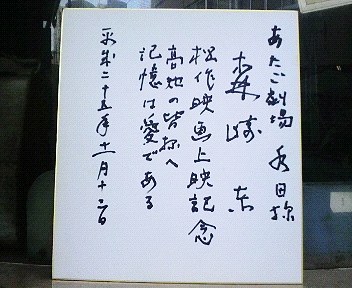 あたご劇場 水田様
森﨑 東
拙作映画上映記念
高知の皆様へ
記憶は愛である
平成二十五年十一月